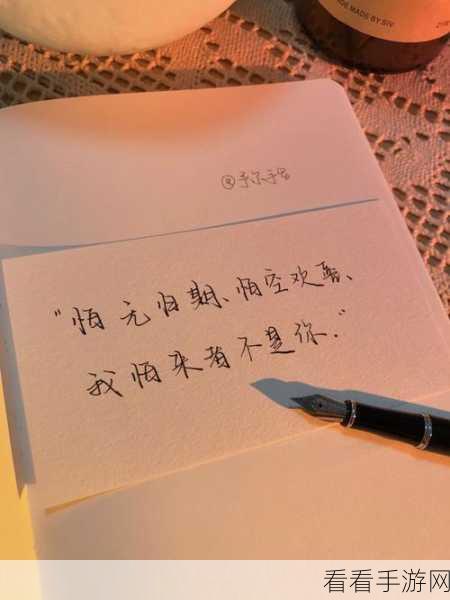 DE MADE BY SIV
@予尔手写
“怕无归期、怕空欢喜、
我怕来者不是你.”
看看手游网